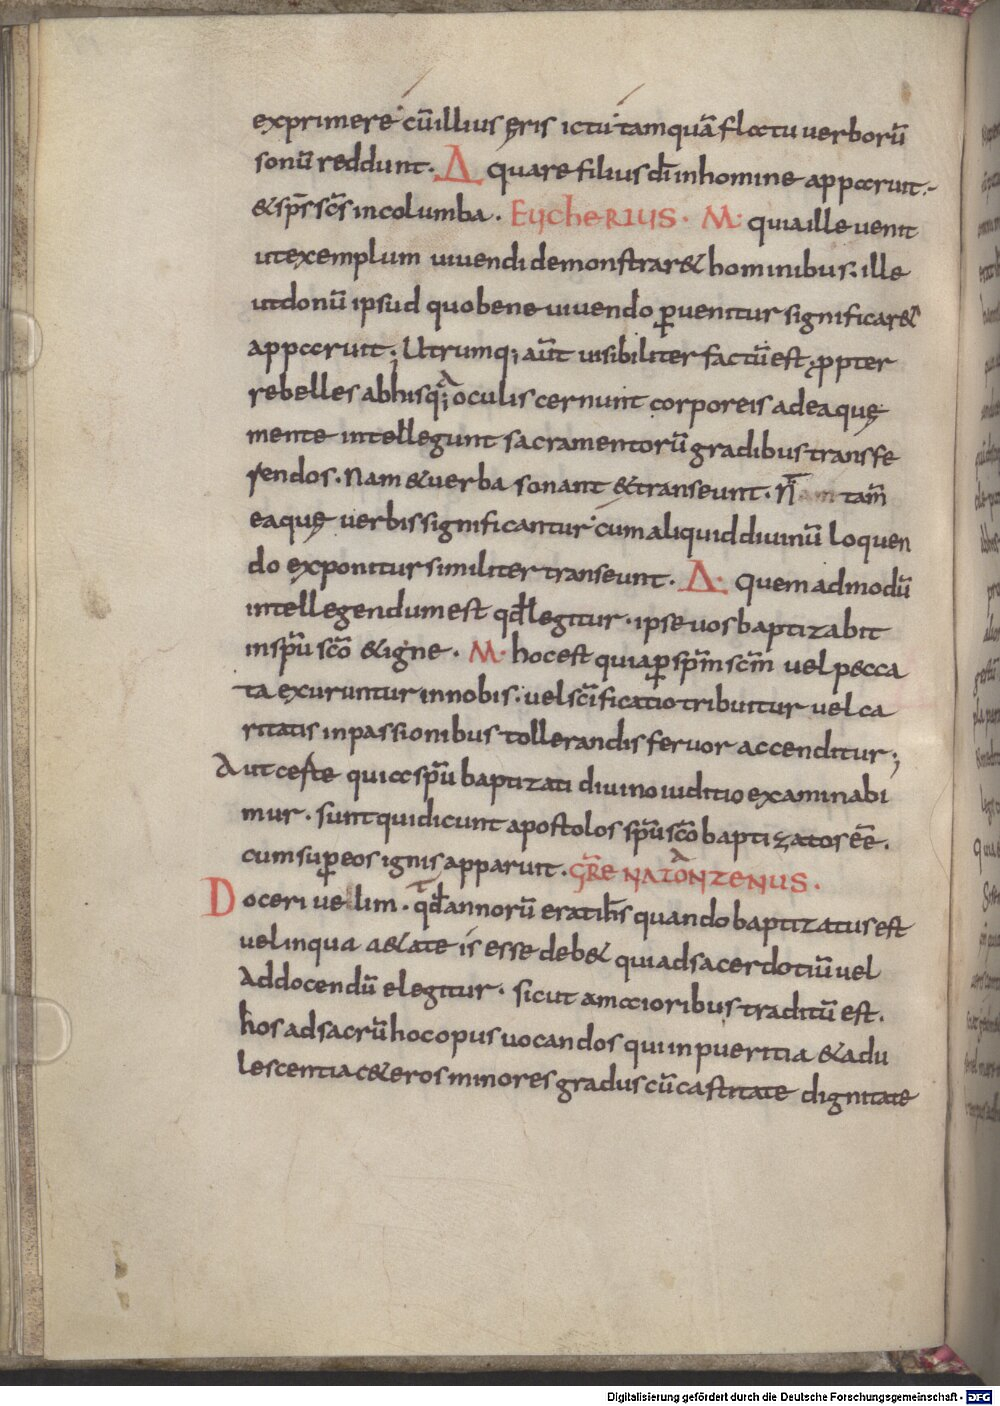 exprimere cū illius ęris ictu tamquā flatu uerborū
sonū reddunt. Δ quare filius dī in homine apparuit.
& sp̄s sc̄s in columba. Eycherius. M. quia ille uenit
ut exemplum uiuendi demonstrar& hominibus. ille
ut donū ipsud quo bene uiuendo ꝑuenitur significar&
apparuit; Utrumq; aūt uisibiliter factū est. ꝓpter
rebelles ab hisq; a oculis cernunt corporeis ad ea quę
mente intellegunt sacramentorū gradibus transfe
rendos. Nam & uerba sonant & transeunt. N̄ tam̄
ea quę uerbis significantur cum aliquid diuinū loquen
do exponitur similiter transeunt. Δ. quem ad modū
intellegendum est qđ legitur. ipse uos baptizabit
in sp̄u sc̄o & igne. M. hoc est quia ꝑ sp̄m sc̄m uel pecca
ta exuruntur in nobis. uel sc̄ificatio tribuitur uel ca
ritatis in passionibus tollerandis feruor accenditur;
Aut certe quia sp̄u baptizati diuino iuditio examinabi
mur. sunt qui dicunt apostolos sp̄u sc̄o baptizatos ēē.
cum suꝑ eos ignis apparuit. GR̄E NAZONZENUS.
Doceri uellim. qđ annorū erat ih̄s quando baptizatus est
uel in qua a&ate is esse deb& qui ad sacerdotiū uel
Ad docendū elegitur. sicut a maioribus traditū est.
hos ad sacrū hoc opus uocandos qui in pueritia & adu
lescentia c&eros minores gradus cū castitate dignitate
Digitalisierung gefördert durch die Deutsche Forschungsgemeinschaft - DFG